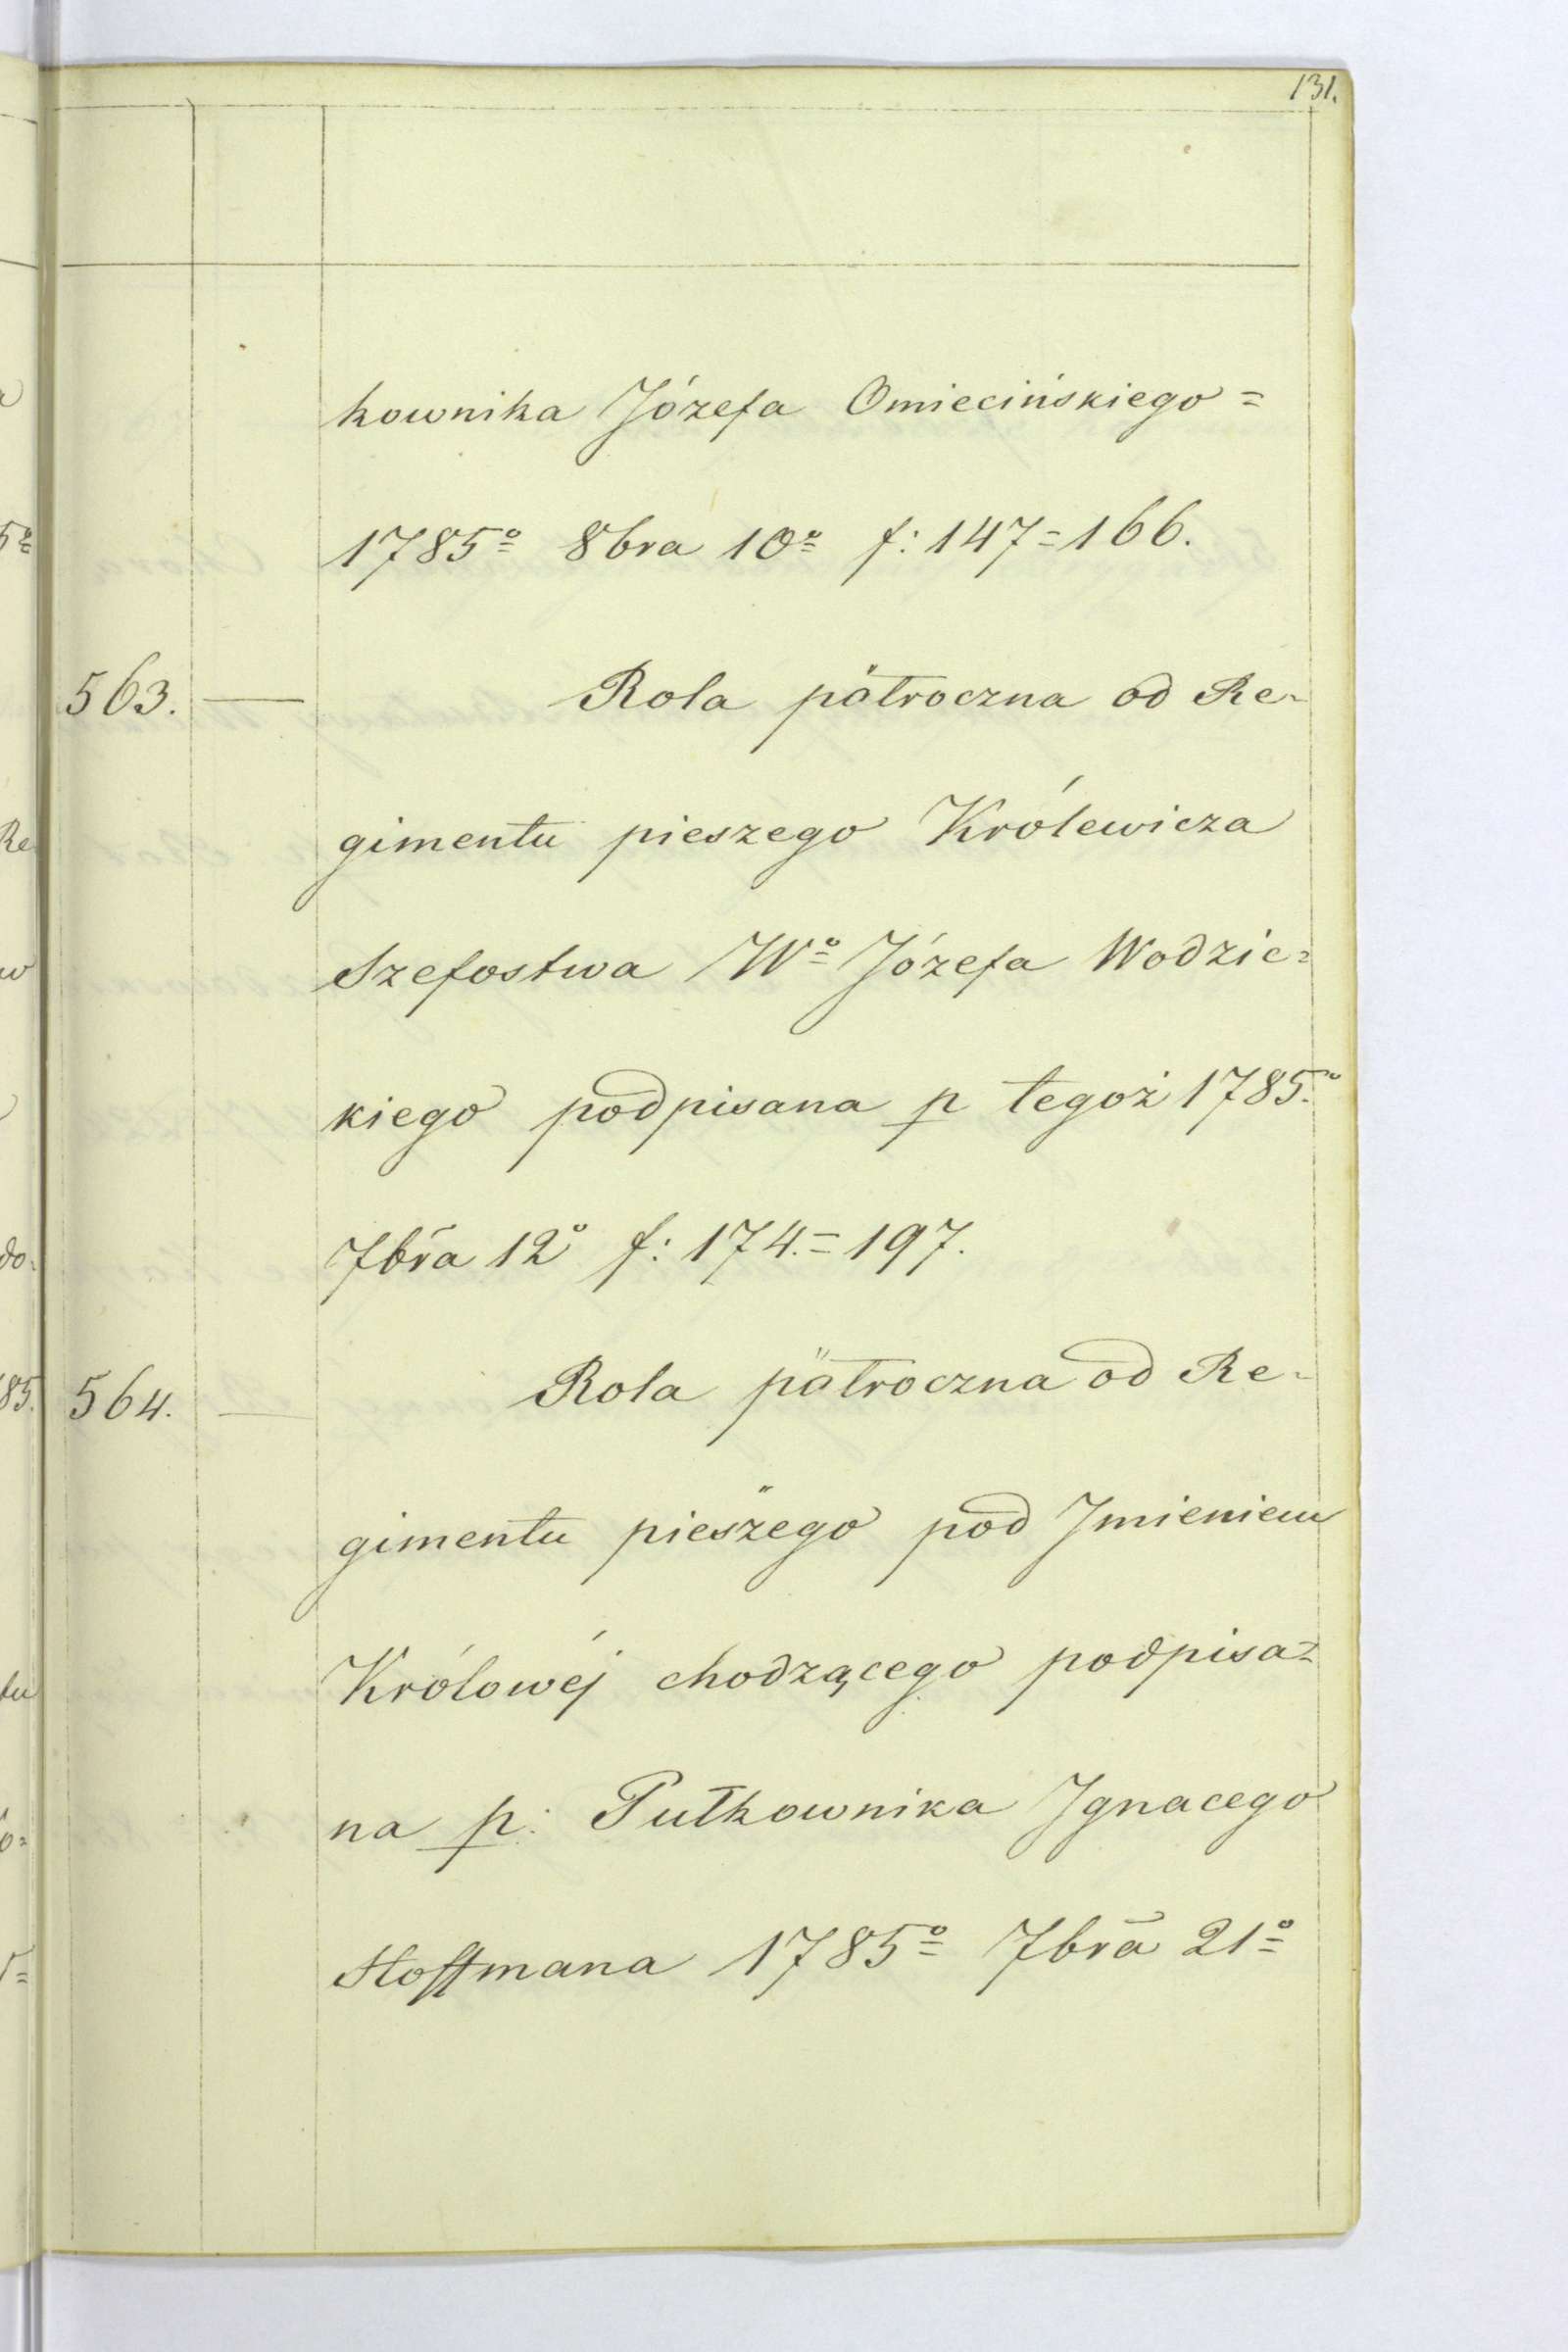 131.
kownika Józefa Omiecińskiego =
1785º 8bra 10º f: 147 = 166.
563. — Rola pötroczna od Re-
gimentu pieszego Królewicza
Szefostwa Wº Józefa Wodzic=
kiego podpisana p tegoż 1785.º
7bra 12º f: 174. = 197.
564. — Rola pötroczna od Re-
gimentu pieszego pod Jmieniem
Królowéj chodzącego podpisa=
na p: Pułkownika Jgnacego
Hoffmana 1785º 7bra 21º